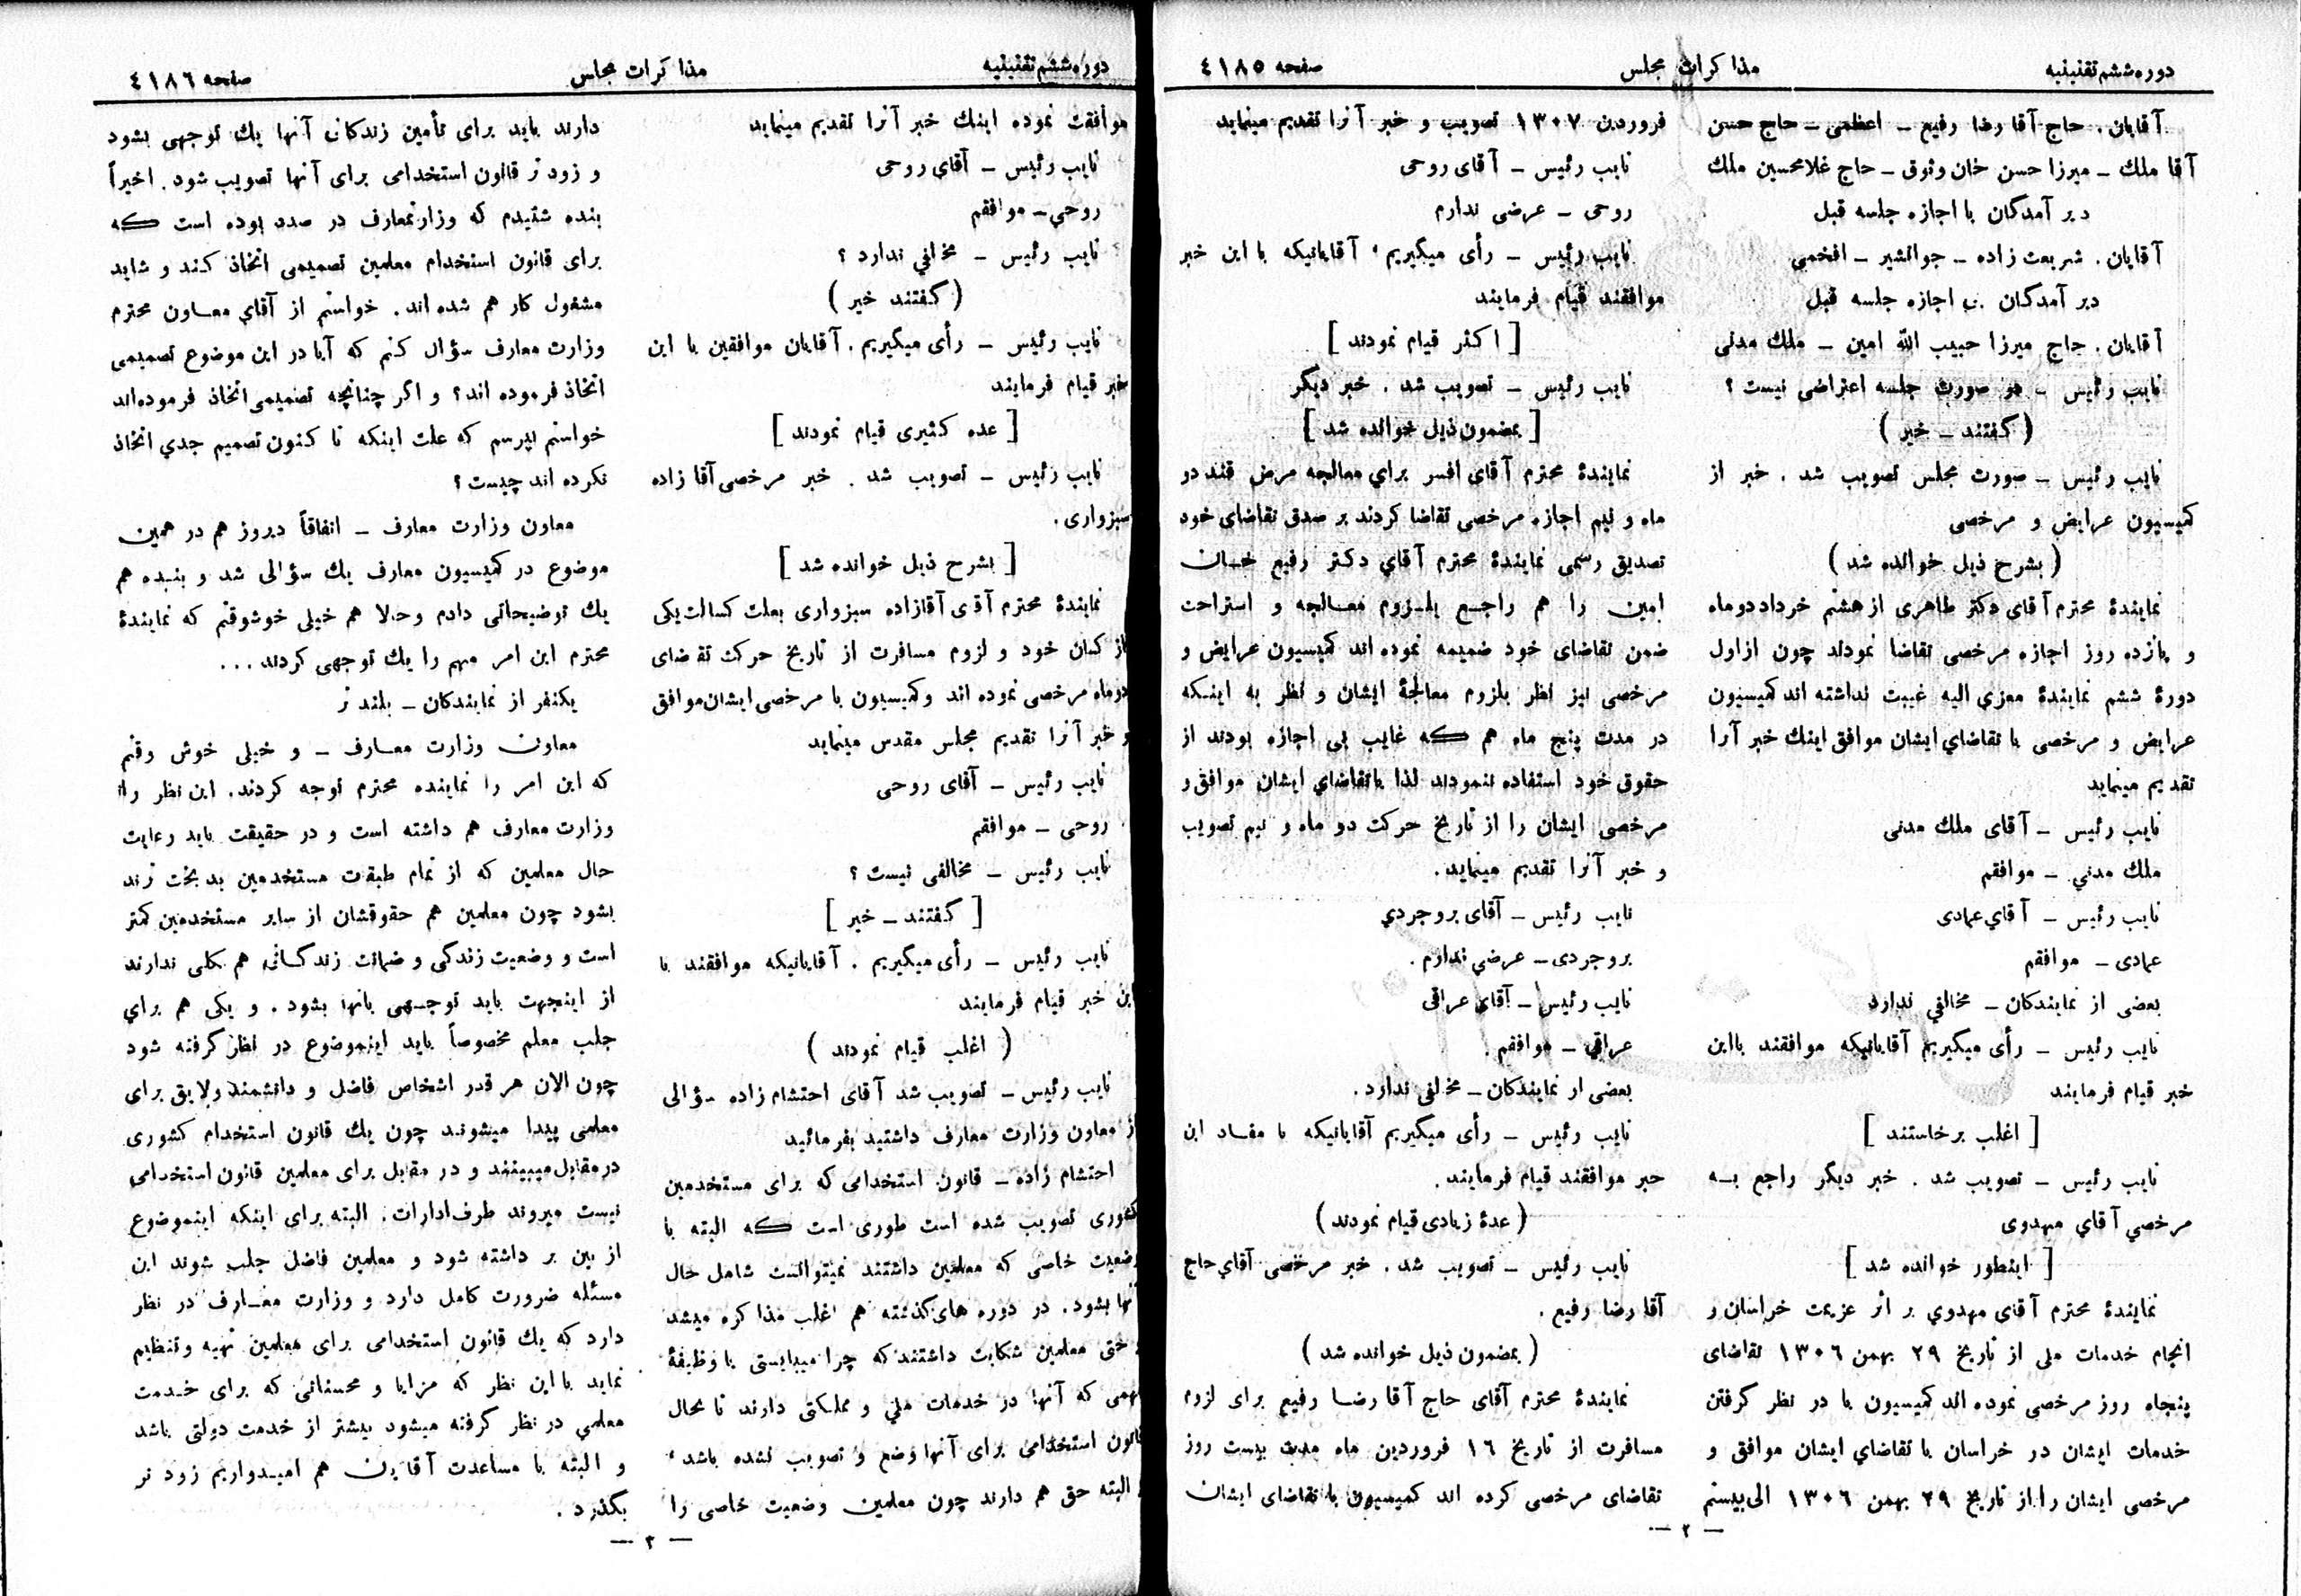 دوره ششم تقنینیه
مذاکرات مجلس
صفحه ٤١٨٥
آقایان. حاج آقا رضا رفیع ـ اعظمی ـ حاج حسن
آقا ملك ـ میرزا حسن خان وثوق ـ حاج غلامحسین ملك
دیر آمدگان با اجازه جلسه قبل
آقایان. شریعت زاده ـ جوانشیر ـ افخمی
دیر آمدگان بی اجازه جلسه قبل
آقایان. حاج میرزا حبیب الله امین ـ ملك مدنی
نایب رئیس ـ در صورت جلسه اعتراضی نیست ؟
( گفتند ـ خیر )
نایب رئیس ـ صورت مجلس تصویب شد . خبر از
کمیسیون عرایض و مرخصی
( بشرح ذیل خوانده شد )
نمایندۀ محترم آقای دکتر طاهری از هشتم خرداد دو ماه
و پانزده روز اجازه مرخصی تقاضا نمودند چون از اول
دورۀ ششم نمایندۀ معزی الیه غیبت نداشته اند کمیسیون
عرایض و مرخصی با تقاضای ایشان موافق اینك خبر آنرا
تقدیم مینماید
نایب رئیس ـ آقای ملك مدنی
ملك مدنی ـ موافقم
نایب رئیس ـ آقای عمادی
عمادی ـ موافقم
بعضی از نمایندگان ـ مخالفی ندارد
نایب رئیس ـ رأی میگیریم آقایانیکه موافقند با این
خبر قیام فرمایند
[ اغلب برخاستند ]
نایب رئیس ـ تصویب شد . خبر دیگر راجع بـه
مرخصی آقای مهدوی
[ اینطور خوانده شد ]
نمایندۀ محترم آقای مهدوی بر اثر عزیمت خراسان و
انجام خدمات ملی از تاریخ ٢٩ بهمن ١٣٠٦ تقاضای
پنجاه روز مرخصی نموده اند کمیسیون با در نظر گرفتن
خدمات ایشان در خراسان با تقاضای ایشان موافق و
مرخصی ایشان را از تاریخ ٢٩ بهمن ١٣٠٦ الی بیستم
فروردین ١٣٠٧ تصویب و خبر آنرا تقدیم مینماید
نایب رئیس ـ آقای روحی
روحی ـ عرضی ندارم
نایب رئیس ـ رأی میگیریم، آقایانیکه با این خبر
موافقند قیام فرمایند
[ اکثر قیام نمودند ]
نایب رئیس ـ تصویب شد . خبر دیگر
[ بمضمون ذیل خوانده شد ]
نمایندۀ محترم آقای افسر برای معالجه مرض قند دو
ماه و نیم اجازه مرخصی تقاضا کردند بر صدق تقاضای خود
تصدیق رسمی نمایندۀ محترم آقای دکتر رفیع خـان
امین را هم راجـع بلـزوم معـالجه و استراحت
ضمن تقاضای خود ضمیمه نموده اند کمیسیون عرایض و
مرخصی نیز نظر بلزوم معالجۀ ایشان و نظر به اینـکه
در مدت پنج ماه هم کـه غایب بی اجازه بودند از
حقوق خود استفاده ننمودند لذا با تقاضای ایشان موافق و
مرخصی ایشان را از تاریخ حرکت دو ماه و نیم تصویب
و خبر آنرا تقدیم مینماید.
نایب رئیس ـ آقای بروجردی
بروجردی ـ عرضی ندارم .
نایب رئیس ـ آقای عراقی
عراقی ـ موافقم .
بعضی از نمایندگان ـ مخالفی ندارد.
نایب رئیس ـ رأی میگیریم آقایانیکه با مفـاد این
خبر موافقند قیام فرمایند.
( عدۀ زیادی قیام نمودند )
نایب رئیس ـ تصویب شد. خبر مرخصی آقای حاج
آقا رضا رفیع .
( بمضمون ذیل خوانده شد )
نمایندۀ محترم آقای حاج آقا رضـا رفیع برای لزوم
مسافرت از تاریخ ١٦ فروردین ماه مدت بیست روز
تقاضای مرخصی کرده اند کمیسیون با تقاضای ایشان
— ٢ —
دوره ششم تقنینیه
مذاکرات مجلس
صفحه ٤١٨٦
موافقت نموده اینك خبر آنرا تقدیم مینماید
نایب رئیس ـ آقای روحی
روحی ـ موافقم
نایب رئیس ـ مخالفی ندارد ؟
( گفتند خیر )
نایب رئیس ـ رأی میگیریم . آقایان موافقین با این
خبر قیام فرمایند
[ عده کثیری قیام نمودند ]
نایب رئیس ـ تصویب شد . خبر مرخصی آقا زاده
سبزواری.
[ بشرح ذیل خوانده شد ]
نمایندۀ محترم آقای آقازاده سبزواری بعلت کسالت یکی
از کسان خود و لزوم مسافرت از تاریخ حرکت تقاضای
دو ماه مرخصی نموده اند و کمیسیون با مرخصی ایشان موافق
و خبر آنرا تقدیم مجلس مقدس مینماید
نایب رئیس ـ آقای روحی
روحی ـ موافقم
نایب رئیس ـ مخالفی نیست ؟
[ گفتند ـ خیر ]
نایب رئیس ـ رأی میگیریم . آقایانیکه موافقند با
این خبر قیام فرمایند
( اغلب قیام نمودند )
نایب رئیس ـ تصویب شد آقای احتشام زاده سؤالی
از معاون وزارت معارف داشتید بفرمائید
احتشام زاده ـ قانون استخدامی که برای مستخدمین
کشوری تصویب شده است طوری است کـه البته با
وضعیت خاصی که معلمین داشتند نمیتوانست شامل حال
آنها بشود. در دوره های گذشته هم اغلب مذاکره میشد
و حتی معلمین شکایت داشتند که چرا میبایستی با وظیفۀ
مهمی که آنها در خدمات ملی و مملکتی دارند تا بحال
قانون استخدامی برای آنها وضع و تصویب نشده باشد،
و البته حق هم دارند چون معلمین وضعیت خاصی را
دارند باید برای تأمین زندگانی آنها یك توجهی بشود
و زودتر قانون استخدامی برای آنها تصویب شود. اخیراً
بنده شنیدم که وزارتمعارف در صدد بوده است کـه
برای قانون استخدام معلمین تصمیمی اتخاذ کند و شاید
مشغول کار هم شده اند. خواستم از آقای معـاون محترم
وزارت معارف سؤال کنم که آیا در این موضوع تصمیمی
اتخاذ فرموده اند؟ و اگر چنانچه تصمیمی اتخاذ فرموده اند
خواستم بپرسم که علت اینکه تا کنون تصمیم جدی اتخاذ
نکرده اند چیست ؟
معاون وزارت معارف ـ اتفاقاً دیروز هم در همین
موضوع در کمیسیون معارف یك سؤالی شد و بنـده هم
یك توضیحاتی دادم و حالا هم خیلی خوشوقتم که نمایندۀ
محترم این امر مهم را یك توجهی کردند ...
یکنفر از نمایندگان ـ بلندتر
معاون وزارت معـارف ـ و خیلی خوش وقتم
که این امر را نماینده محترم توجه کردند. این نظر را
وزارت معارف هم داشته است و در حقیقت باید رعایت
حال معلمین که از تمام طبقات مستخدمین بدبخت ترند
بشود چون معلمین هم حقوقشان از سایر مستخدمین کمتر
است و وضعیت زندگی و ضمانت زندگـانی هم بکلی ندارند
از اینجهت باید توجـهی بآنها بشود . و یکی هم برای
جلب معلم مخصوصاً باید اینموضوع در نظر گرفته شود
چون الان هر قدر اشخاص فاضل و دانشمند و لایق برای
معلمی پیدا میشوند چون یك قانون استخدام کشوری
در مقابل میبینند و در مقابل برای معلمین قانون استخدامی
نیست میروند طرف ادارات. البته برای اینکه اینموضوع
از بین بر داشته شود و معلمین فاضل جلب شوند این
مسئله ضرورت کامل دارد و وزارت معـارف در نظر
دارد که یك قانون استخدامی برای معلمین تهیه و تنظیم
نماید با این نظر که مزایا و محسناتی که برای خـدمت
معلمی در نظر گرفته میشود بیشتر از خدمت دولتی باشد
و البته با مساعدت آقایان هم امیـدواریم زود تر
بگذرد .
— ٣ —